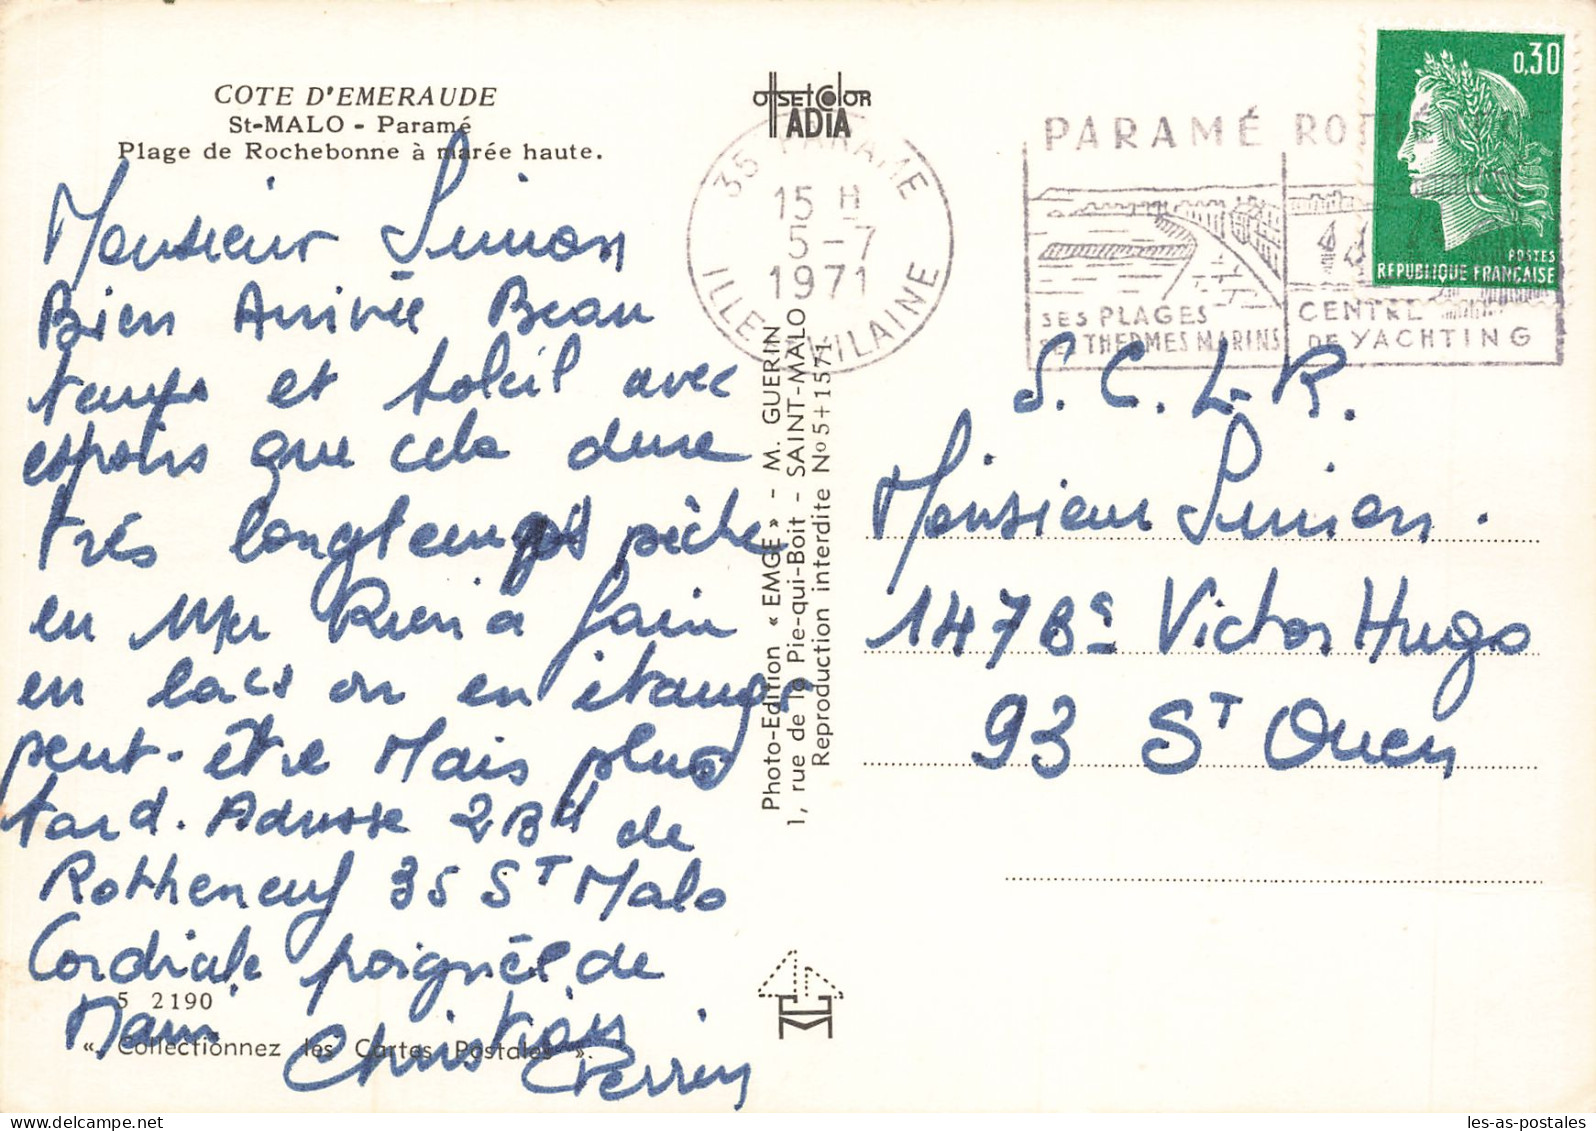 COTE D'EMERAUDE
St-MALO - Paramé
Plage de Rochebonne à marée haute.
Monsieur Simon
Bien Arrivée Beau
temps et soleil avec
espoirs que cela dure
très longtemps pêche
en Mer Rien a faire
en lacs ou en étangs
peut-être Mais plus
tard. Adresse 2 Bd de
Rotheneuf 35 ST Malo
Cordiale poignée de
Main Christian
Perrin
5 2190
« Collectionnez les Cartes Postales ».
offset color
ADIA
Photo-Edition « EMGE » - M. GUERIN
1, rue de la Pie-qui-Boit - SAINT-MALO
Reproduction interdite No 5+1571
35 PARAME
15 H
5-7
1971
ILLE-VILAINE
PARAMÉ
SES PLAGES
SES THERMES MARINS
CENTRE
DE YACHTING
0,30
POSTES
REPUBLIQUE FRANÇAISE
S.C.L.R.
Monsieur Simon.
147 Bd Victor Hugo
93 ST Ouen
les-as-postales.com